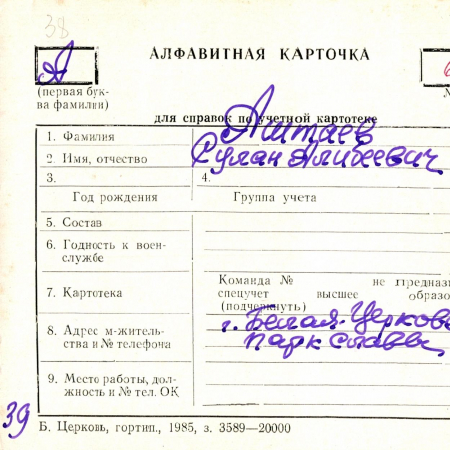 38
АЛФАВИТНАЯ КАРТОЧКА
А
6
(первая бук-
ва фамилии)
№
для справок по учетной картотеке
1. Фамилия Аштаев
2. Имя, отчество Сулан Алибеевич
3. 4.
Год рождения Группа учета
5. Состав
6. Годность к воен-
службе
7. Картотека Команда № не предназ
спецучет высшее образо
(подчеркнуть)
8. Адрес м-житель-
ства и № телефона г. Белая-Церков
парк Славы
9. Место работы, дол-
жность и № тел. ОК
39
Б. Церковь, гортип., 1985, з. 3589—20000